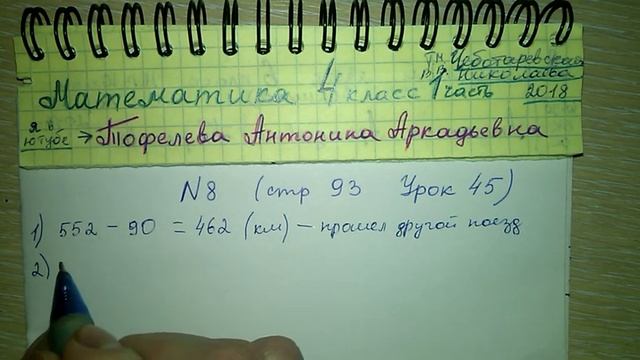 Т.М. Чеботаревская
В.В. Николаева
Математика 4 класс 1 часть 2018
Я в ютубе → Тофелева Антонина Аркадьевна
N8 (стр 93 Урок 45)
1) 552 - 90 = 462 (км) - прошел другой поезд
2)